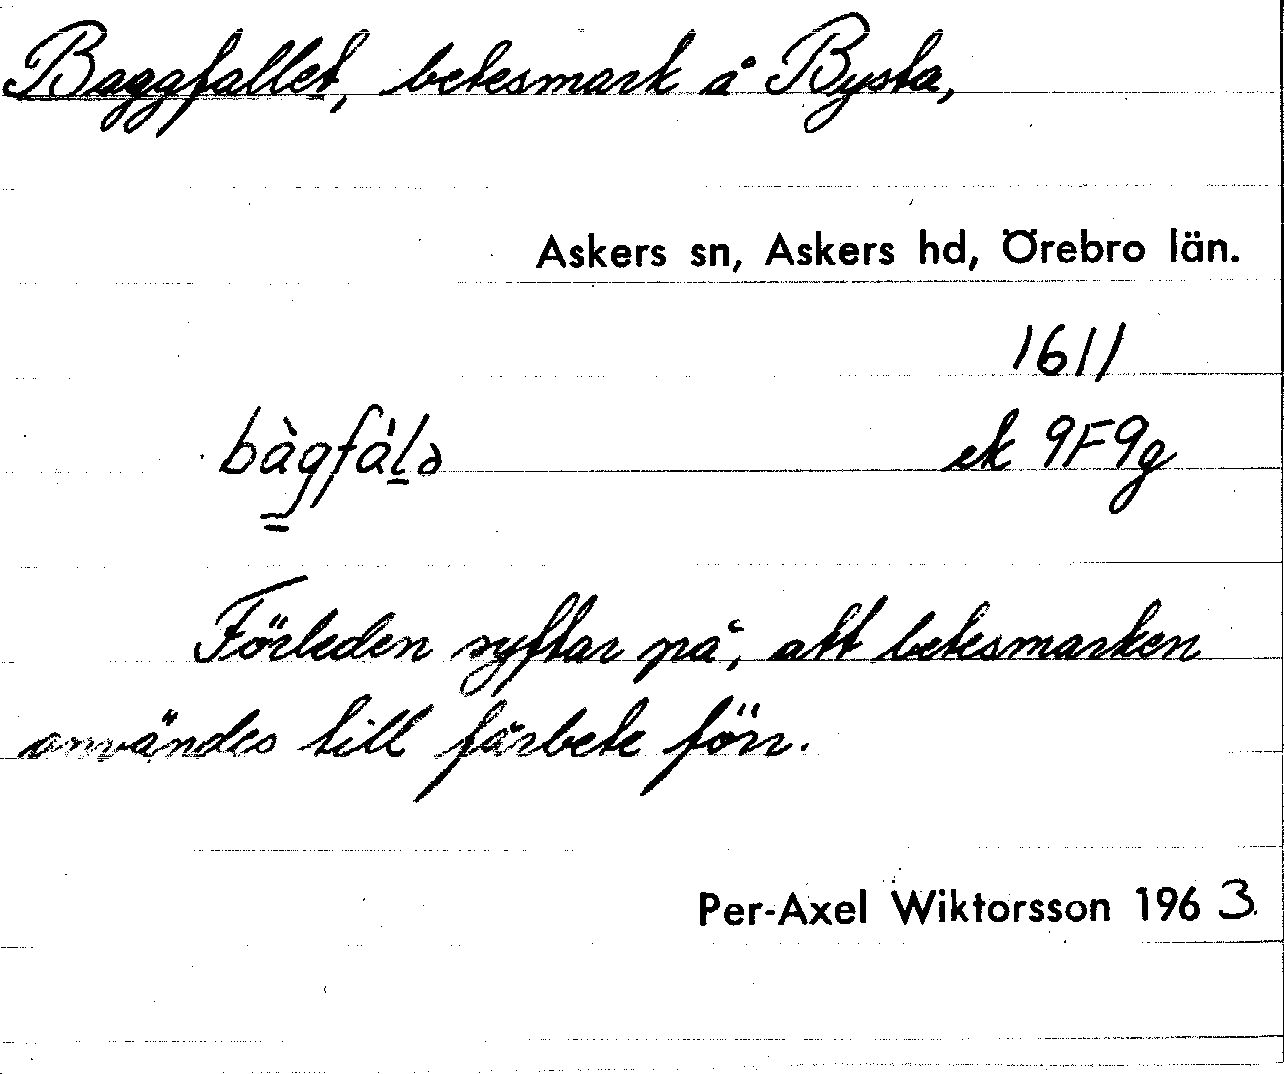 Baggfallet, betesmark å Bysta,
Askers sn, Askers hd, Örebro län.
1611
bàgfál̲ə ek 9F9g
Förleden syftar på, att betesmarken
användes till fårbete förr.
Per-Axel Wiktorsson 1963